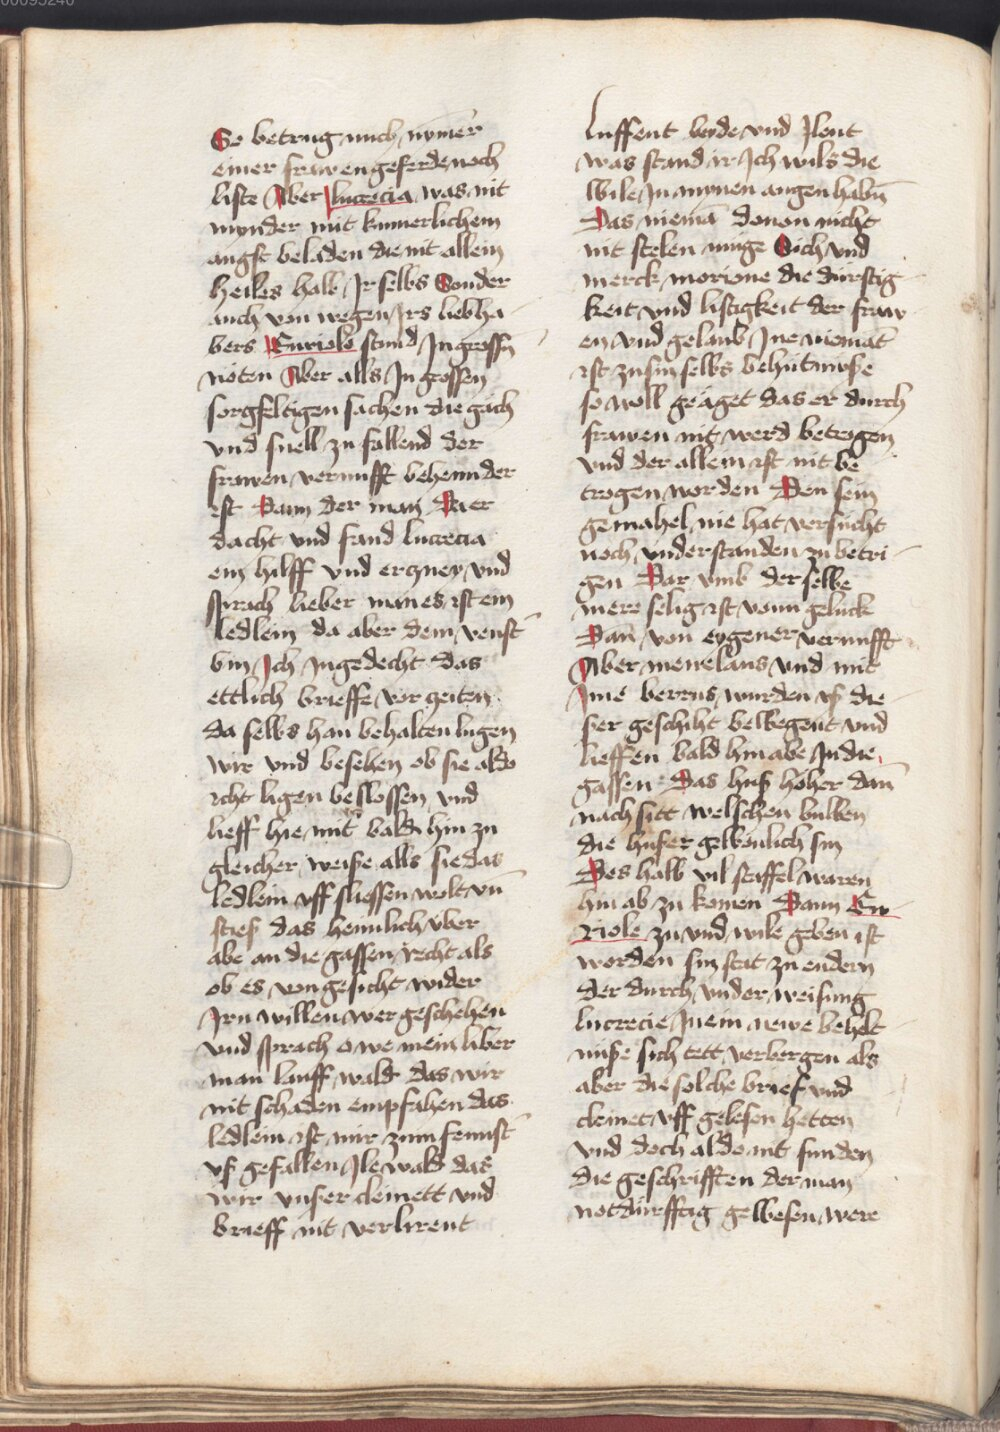 00095240
So betrug mich nymer
einer frawen geferde noch
liste Aber lucrecia was nit
mynder mit kumerlichem
angst beladen die nit allein
heiles halb Jr selbs Sonder
auch von wegen Jrs liebha-
bers Euriole stund Jn grossn̄
nöten Aber alls Jn grossen
sorgfeltigen sachen die gäch
vnd snell zu fallend der
frawen vernufft behennder
ist Dann der man Da er
dacht vnd fand lucrecia
ein hilff vnd erczney vnd
sprach lieber man es ist ein
ledlein da aber dem venst̄
bin Jch Jngedecht das
ettlich brieffe vor zeiten
da selbs han behalten lugen
wir vnd besehen ob sie aldo
icht ligen beslossen vnd
lieff hie mit bald hin zu
gleicher weiße alls sie das
ledlein vff sliessen wolt vn̄
stieß das heimlich über
abe an die gassen recht als
ob es von gesicht wider
Jrn willen wer geschehen
vnd sprach o we mein liber
man lauff wald das wir
nit schaden empfahen das
ledlein ist mir zum fennst̄
vß gefallen Jle wald das
wir vnßer cleinett vnd
brieff nit verlirent
luffent beyde vnd Jlent
was stand ir Jch wils die
wile Jn mynen augen habn̄
Das niemā donon nicht
nit stelen müge Sich vnd
merck morione die dürstig-
keit vnd listigkeit der fraw-
en vnd gelaub Jne niemāt
ist zu sin selbs behütnuße
so woll geäget das er durch
frawen nit werd betrogen
vnd der allein ist nit be
trogen worden Den sein
gemahel nie hat versucht
noch vnderstanden zu betri-
gen Dar vmb der selbe
mere selig ist vonn gelück
Dan̄ von eygener vernufft
Aber menelaus vnd mit
Jme berrus wurden vß die
ßer geschiht bewegent vnd
lieffen bald hin abe Jn die
gassen Das huß höher dan̄
nach sitt welschen
die hußer gewonlich sin
Des halb vil staffel waren
hin ab zu komen Dann Eu-
riole zu vnd wile geben ist
worden sin stat zu endern
der durch vnder weisung
lucrecie Jn ein newe behelt
nüße sich tett verbergen als
aber die solche brief vnd
cleinet vff gelesen hetten
vnd doch aldo nit funden
die geschrifften der man
notdürfftig gewesen were